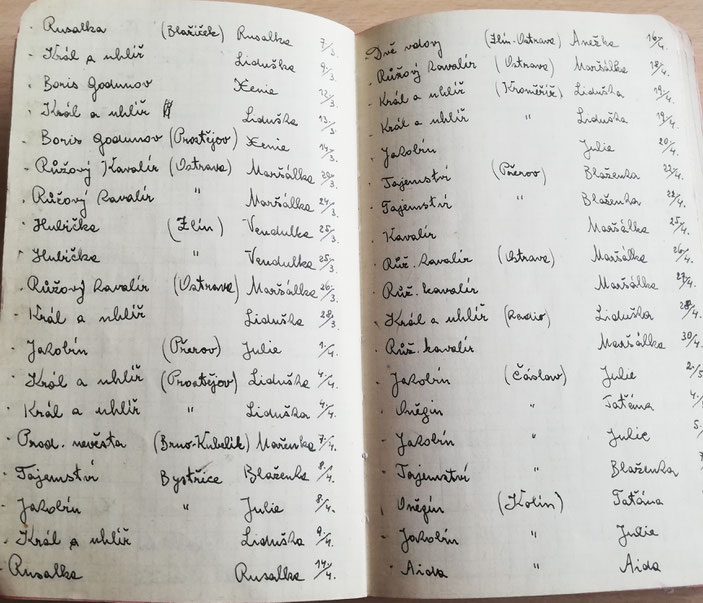 Rusalka (Blažíček) Rusalka 7/3.
Král a uhlíř Liduška 9/3.
Boris Godunov Xenie 12/3.
Král a uhlíř Liduška 13/3.
Boris Godunov (Prostějov) Xenie 14/3.
Růžový Kavalír (Ostrava) Maršálka 20/3.
Růžový kavalír " Maršálka 24/3.
Hubička (Zlín) Vendulka 25/3.
Hubička " Vendulka 25/3.
Růžový kavalír (Ostrava) Maršálka 26/3.
Král a uhlíř Liduška 28/3.
Jakobín (Přerov) Julie 1/4.
Král a uhlíř (Prostějov) Liduška 4/4.
Král a uhlíř " Liduška 4/4.
Prod. nevěsta (Brno-Kubelík) Mařenka 7/4.
Tajemství Bystřice Blaženka 8/4.
Jakobín " Julie 8/4.
Král a uhlíř Liduška 9/4.
Rusalka Rusalka 14/4.
Dvě vdovy (Zlín-Ostrava) Anežka 16/4.
Růžový kavalír (Ostrava) Maršálka 18/4.
Král a uhlíř (Kroměříž) Liduška 19/4.
Král a uhlíř " Liduška 19/4.
Jakobín Julie 20/4.
Tajemství (Přerov) Blaženka 22/4.
Tajemství " Blaženka 22/4.
Kavalír Maršálka 25/4.
Růž. kavalír (Ostrava) Maršálka 26/4.
Růž. kavalír Maršálka 27/4.
Král a uhlíř (Radio) Liduška 28/4.
Růž. kavalír Maršálka 30/4.
Jakobín (Čáslav) Julie 2/5
Oněgin " Taťána 4/
Jakobín " Julie 5/
Tajemství " Blaženka 7
Oněgin (Kolín) Taťána
Jakobín " Julie
Aida " Aida